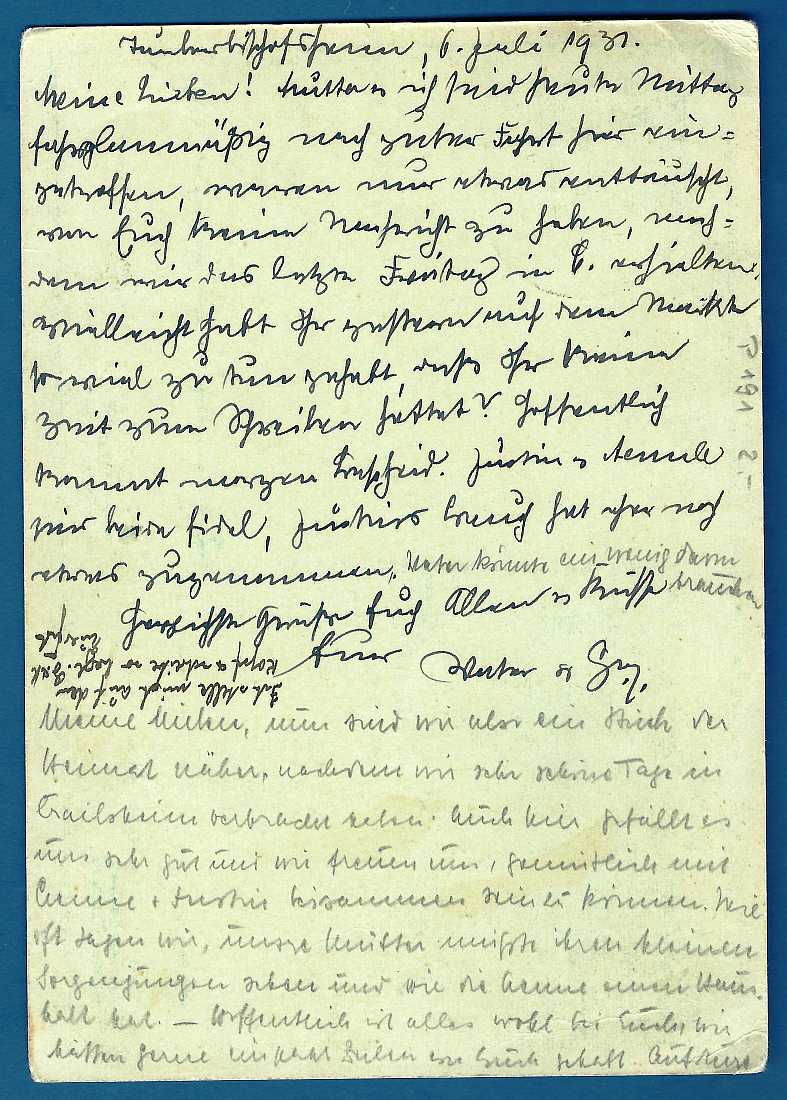 Tauberbischofsheim, 6. Juli 1931.
Meine Lieben! Mutter u ich sind heute Mittag
fahrplanmäßig nach guter Fahrt hier ein=
getroffen, waren nur etwas enttäuscht,
von Euch keine Nachricht zu haben, nach=
dem wir das letzte Freitag in C. erhielten.
Vielleicht habt Ihr gestern auf dem Markte
so viel zu tun gehabt, daß Ihr keine
Zeit zum Schreiben hattet? Hoffentlich
kommt morgen Bescheid. Justin u
sind beide fidel, Justins Bauch hat eher noch
etwas zugenommen. Vater könnte ein wenig davon
brauchen
Herzlichste Grüße Euch Allen u Küsse
Euer Vater u
Ich stelle mich auf den
Kopf u schreibe
Meine Lieben, nun sind wir also ein Stück der
Heimat näher, nachdem wir sehr schöne Tage in
Crailsheim verbracht haben. Auch hier gefällt es
uns sehr gut und wir freuen uns, gemütlich mit
+ Justin beisammen sein zu können. Wie
oft sagen wir, unsre Mutter müßte ihren kleinen
Sorgenjungen sehen und wie die einen Haus-
halt hat. — Hoffentlich ist alles wohl bei Euch, wir
hätten gerne ein paar Zeilen von Euch gehabt.
G 191 2.-